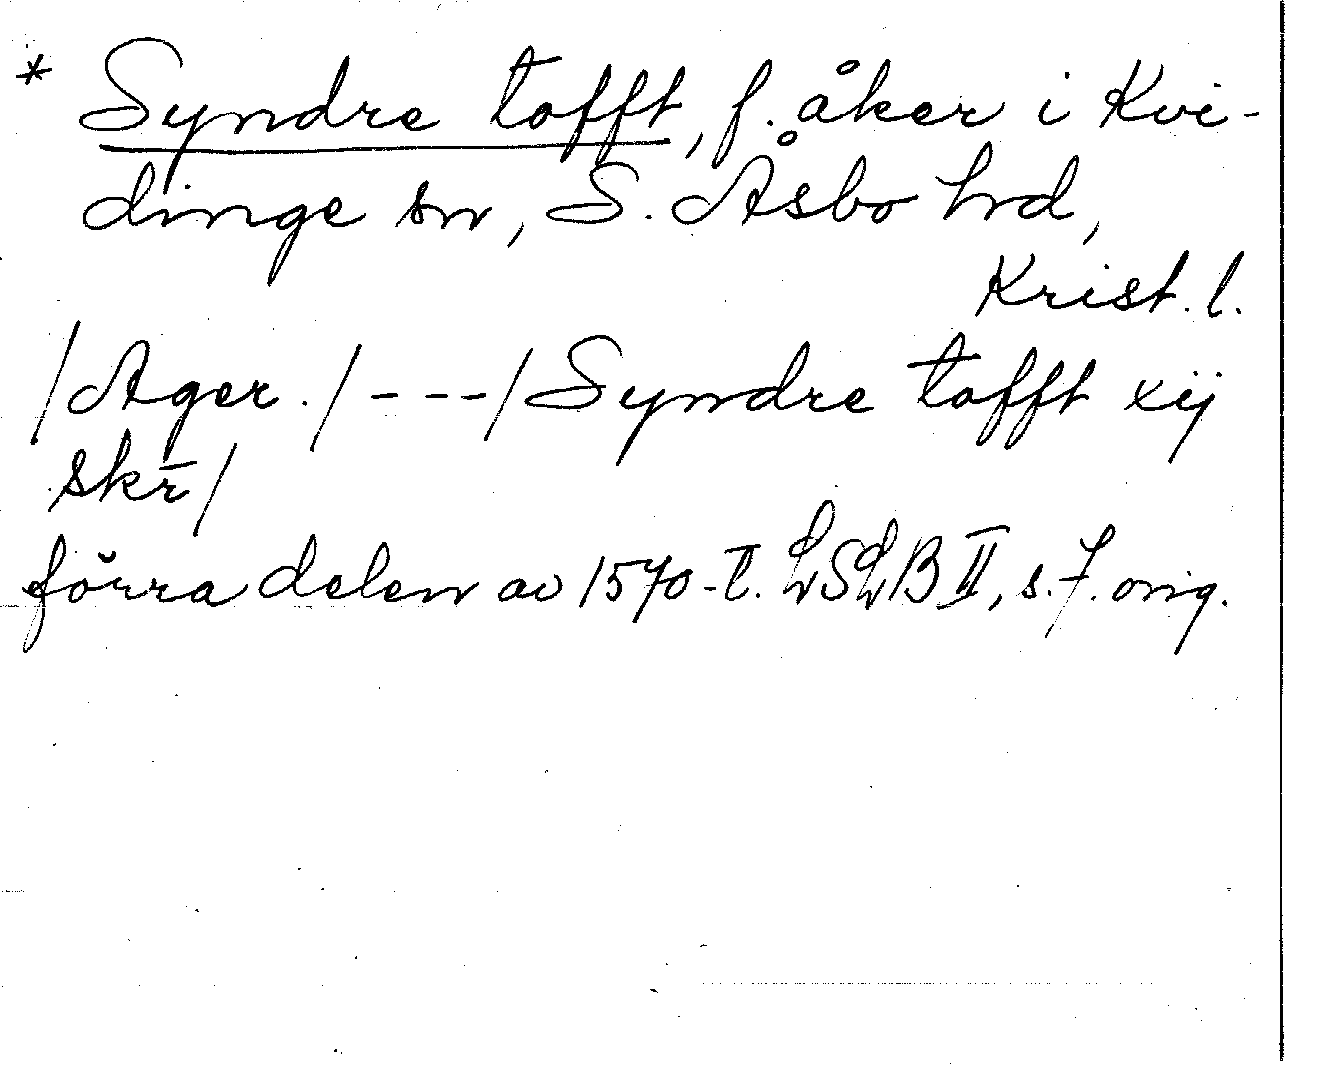 * Syndre tofft, f. åker i Kvi-
dinge sn, S. Åsbo hrd,
Krist. l.
/Ager./---/Syndre tofft xij
skr̄/
förra delen av 1570-t. LSLB II, s. 7. orig.